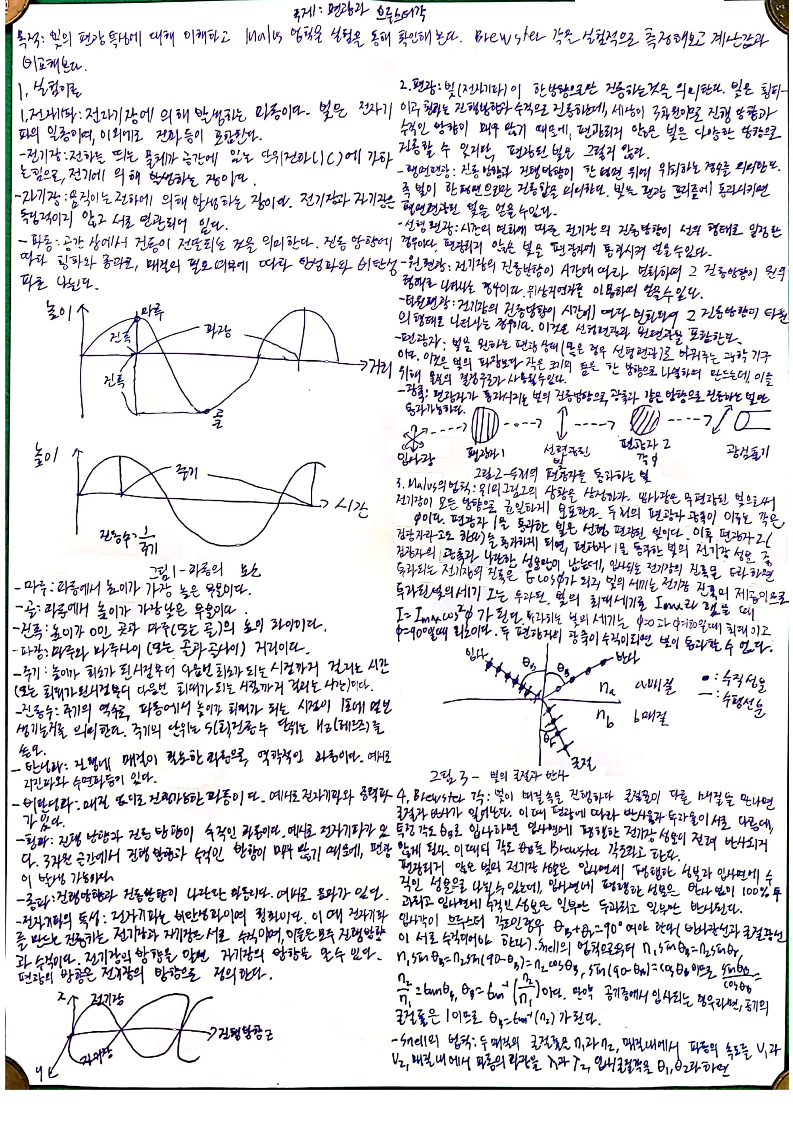 주제: 편광과 브루스터각
목적: 빛의 편광 특성에 대해 이해하고 Malus 법칙을 실험을 통해 확인해 본다. Brewster 각을 실험적으로 측정해보고 계산값과
비교해본다.
1. 실험이론
1. 전자기파: 전자기장에 의해 발생하는 파동이다. 빛은 전자기
파의 일종이며, 이외에도 전파 등이 포함된다.
-전기장: 전하를 띄는 물체가 공간에 있는 단위전하(1C)에 가하
는 힘으로, 전기에 의해 발생하는 장이다.
-자기장: 움직이는 전하에 의해 발생하는 장이다. 전기장과 자기장은
독립적이지 않고 서로 연관되어 있다.
-파동: 공간 상에서 진동이 전달되는 것을 의미한다. 진동 방향에
따라 횡파와 종파로, 매질의 필요 여부에 따라 탄성파와 비탄성
파로 나뉜다.
높이
마루
진폭
파장
거리
진폭
골
높이
주기
시간
진동수: 1/주기
그림1-파동의 요소
-마루: 파동에서 높이가 가장 높은 부분이다.
-골: 파동에서 높이가 가장 낮은 부분이다.
-진폭: 높이가 0인 곳과 마루(또는 골)의 높이 차이이다.
-파장: 마루와 마루사이 (또는 골과 골사이) 거리이다.
-주기: 높이가 최소가 된 시점부터 다음번 최소가 되는 시점까지 걸리는 시간
(또는 최대가 된 시점부터 다음번 최대가 되는 시점까지 걸리는 시간)이다.
-진동수: 주기의 역수로, 파동에서 높이가 최대가 되는 시점이 1초에 몇 번
생기는지를 의미한다. 주기의 단위는 s(초) 진동수 단위는 Hz(헤르츠)를
쓴다.
-탄성파: 진행에 매질이 필요한 파동으로, 역학적인 파동이다. 예시로
지진파와 수면파등이 있다.
-비탄성파: 매질 없이도 진행가능한 파동이다. 예시로 전자기파와 중력파
가 있다.
-횡파: 진행 방향과 진동 방향이 수직인 파동이다. 예시로 전자기파가 있
다. 3차원 공간에서 진행 방향과 수직인 방향이 매우 많기 때문에, 편광
이 발생 가능하다.
-종파: 진행방향과 진동방향이 나란한 파동이다. 예시로 음파가 있다.
-전자기파의 특성: 전자기파는 비탄성파이며 횡파이다. 이 때 전자기파
를 만드는 진동하는 전기장과 자기장은 서로 수직이며, 이들은 모두 진행방향
과 수직이다. 전기장의 방향을 알면 자기장의 방향을 알 수 있다.
편광의 방향은 전기장의 방향으로 정의한다.
x
전기장
진행방향 z
자기장
y
2. 편광: 빛(전자기파)이 한 방향으로만 진동하는 것을 의미한다. 빛은 횡파
이고, 횡파는 진행방향과 수직으로 진동하는데, 세상이 3차원이므로 진행 방향과
수직인 방향이 매우 많기 때문에, 편광되지 않은 빛은 다양한 방향으로
진동할 수 있지만, 편광된 빛은 그렇지 않다.
-평면편광: 진동 방향과 진행방향이 한 평면 위에 위치하는 경우를 의미한다.
즉 빛이 한 평면으로만 진동함을 의미한다. 빛을 편광 프리즘에 통과시키면
평면편광된 빛을 얻을 수 있다.
-선형편광: 시간의 변화에 따른 전기장의 진동방향이 선의 형태로 일정한
경우이다. 편광되지 않은 빛을 편광자에 통과시켜 얻을 수 있다.
-원편광: 전기장의 진동방향이 시간에 따라 변화하며 그 진동방향이 원의
형태로 나타나는 경우이다. 위상지연자를 이용하여 얻을 수 있다.
-타원편광: 전기장의 진동방향이 시간에 따라 변화하며 그 진동방향이 타원
의 형태로 나타나는 경우이다. 이것은 선형편광과 원편광을 포함한다.
-편광자: 빛을 원하는 편광상태(많은 경우 선형편광)로 바꿔주는 광학 기구
이다. 이것은 빛의 파장보다 작은 크기의 틈을 한 방향으로 나열하여 만드는데, 이를
위해 물질의 결정구조가 사용될 수 있다.
-광축: 편광자가 통과시키는 빛의 진동방향으로, 광축과 같은 방향으로 진동하는 빛만
통과가능하다.
입사광
편광자1
선편광된
빛
편광자 2
각 φ
광검출기
그림2-두개의 편광자를 통과하는 빛
3. Malus의 법칙: 위의 그림2의 상황을 상정하자. 입사광은 무편광된 빛으로써
전기장이 모든 방향으로 균일하게 분포한다. 두 개의 편광자 광축이 이루는 각은
φ이다. 편광자 1을 통과한 빛은 선형 편광된 빛이다. 이후 편광자 2(
검광자라고도 한다)를 통과하게 되면, 편광자 1을 통과한 빛의 전기장 성분 중
검광자의 광축과 나란한 성분만이 남는데, 입사되는 전기장의 진폭을 E라 하면
투과되는 전기장의 진폭은 Ecosφ가 되고, 빛의 세기는 전기장 진폭의 제곱이므로
투과된 빛의 세기 I는 투과된 빛의 최대세기를 Imax라 했을 때
I=Imaxcos²φ가 된다. 투과되는 빛의 세기는 φ=0과 φ=180일때 최대이고
φ=90일때 최소이다. 두 편광자의 광축이 수직이되면 빛이 통과할 수 없다.
입사
θB
θB
반사
na a매질
nb b매질
•: 수직성분
-: 수평성분
θr
굴절
그림 3 - 빛의 굴절과 반사
4. Brewster 각: 빛이 매질속을 진행하다 굴절률이 다른 매질을 만나면
굴절과 반사가 일어난다. 이 때 편광에 따라 반사율과 투과율이 서로 다른데,
특정 각도 θB로 입사하면 입사면에 평행한 전기장 성분이 전혀 반사되지
않게 된다. 이때의 각도 θB를 Brewster 각도라고 한다.
편광되지 않은 빛의 전기장 성분은 입사면에 평행한 성분과 입사면에 수
직인 성분으로 나뉠 수 있는데, 입사면에 평행한 성분은 반사 없이 100% 투
과되고 입사면에 수직인 성분은 일부만 투과되고 일부만 반사된다.
입사각이 브루스터 각도인 경우 θB+θr=90°여야 한다(반사광선과 굴절광선
이 서로 수직이어야 하다). Snell의 법칙으로부터 n₁sinθB=n₂sinθr,
n₁sinθB=n₂sin(90-θB)=n₂cosθB, sin(90-θB)=cosθB이므로 sinθB/cosθB=
n₂/n₁=tanθB, θB=tan⁻¹(n₂/n₁)이다. 만약 공기중에서 입사되는 경우라면, 공기의
굴절률은 1이므로 θB=tan⁻¹(n₂)가 된다.
-Snell의 법칙: 두 매질의 굴절률을 n₁과 n₂, 매질내에서 파동의 속도를 V₁과
V₂, 매질 내에서 파동의 파장을 λ₁과 λ₂, 입사 굴절각을 θ₁, θ₂라 하면